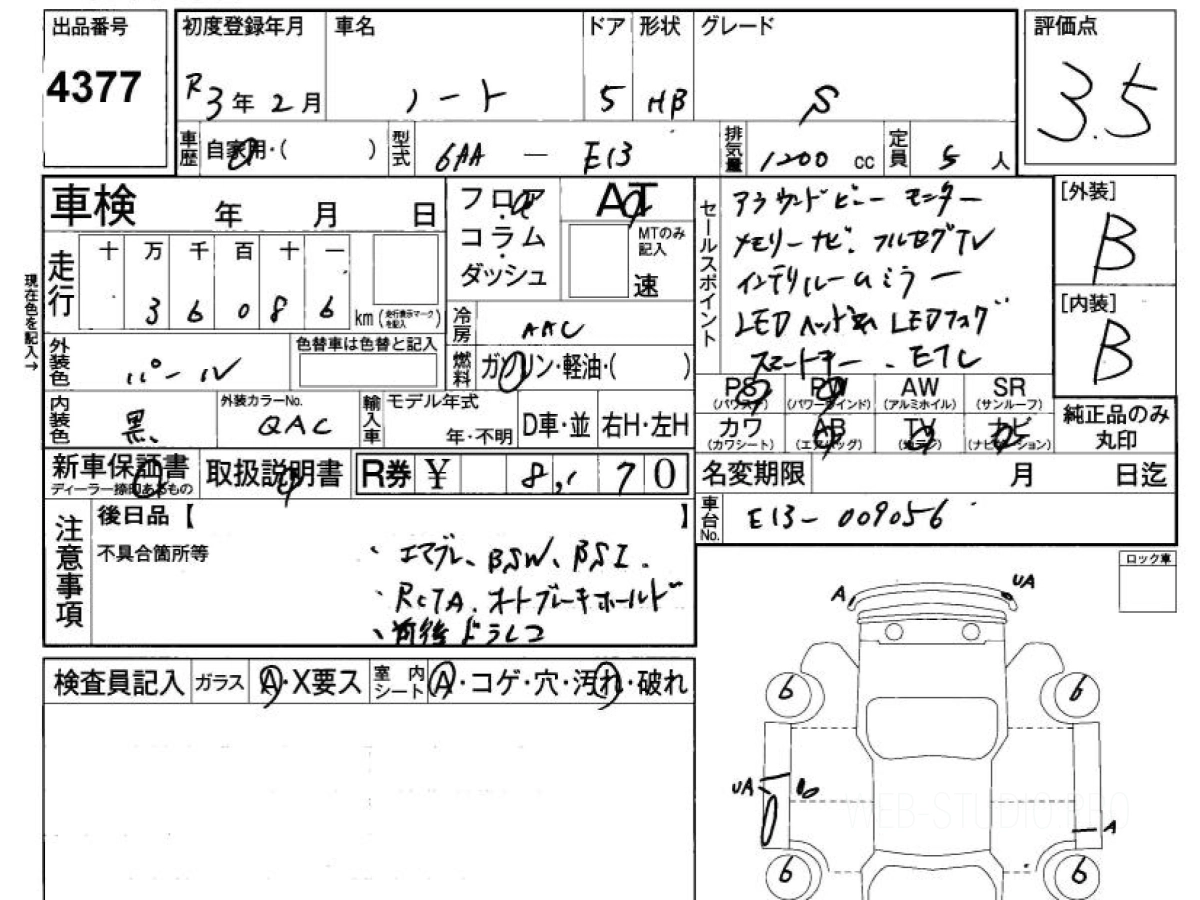 出品番号
4377
初度登録年月
R3年2月
車名
ノート
ドア
5
形状
HB
グレード
S
評価点
3.5
車歴
自家用・( )
型式
6AA — E13
排気量
1200 cc
定員
5人
車検 年 月 日
フロア
コラム
ダッシュ
AT
MTのみ
記入
速
セールスポイント
アラウンドビューモニター
メモリーナビ. フルセグTV
インテリルームミラー
LEDヘッド LEDフォグ
スマートキー. ETC
[外装]
B
[内装]
B
現在色を記入→
走行
十 万 千 百 十 一
3 6 0 8 6
km(走行表示マークを記入)
冷房
AAC
外装色
パール
色替車は色替と記入
燃料
ガソリン・軽油・( )
PS
(パワステ)
PW
(パワーウインド)
AW
(アルミホイル)
SR
(サンルーフ)
カワ
(カワシート)
AB
(エアバッグ)
TV
ナビ
(ナビゲーション)
純正品のみ
丸印
内装色
黒
外装カラーNo.
QAC
輸入車
モデル年式
年・不明
D車・並
右H・左H
新車保証書
ディーラー捺印あるもの
取扱説明書
R券 ¥ 8,170
名変期限 月 日迄
車台No.
E13-009056
注意事項
後日品【 】
不具合箇所等
、エマブレ、BSW、BSI.
・RCTA. オートブレーキホールド
、前後ドラレコ
ロック車
A
UA
検査員記入
ガラス
A・X要ス
室内シート
A・コゲ・穴・汚れ・破れ
6
6
UA
A
6
6
WEB-STUDIO.PRO